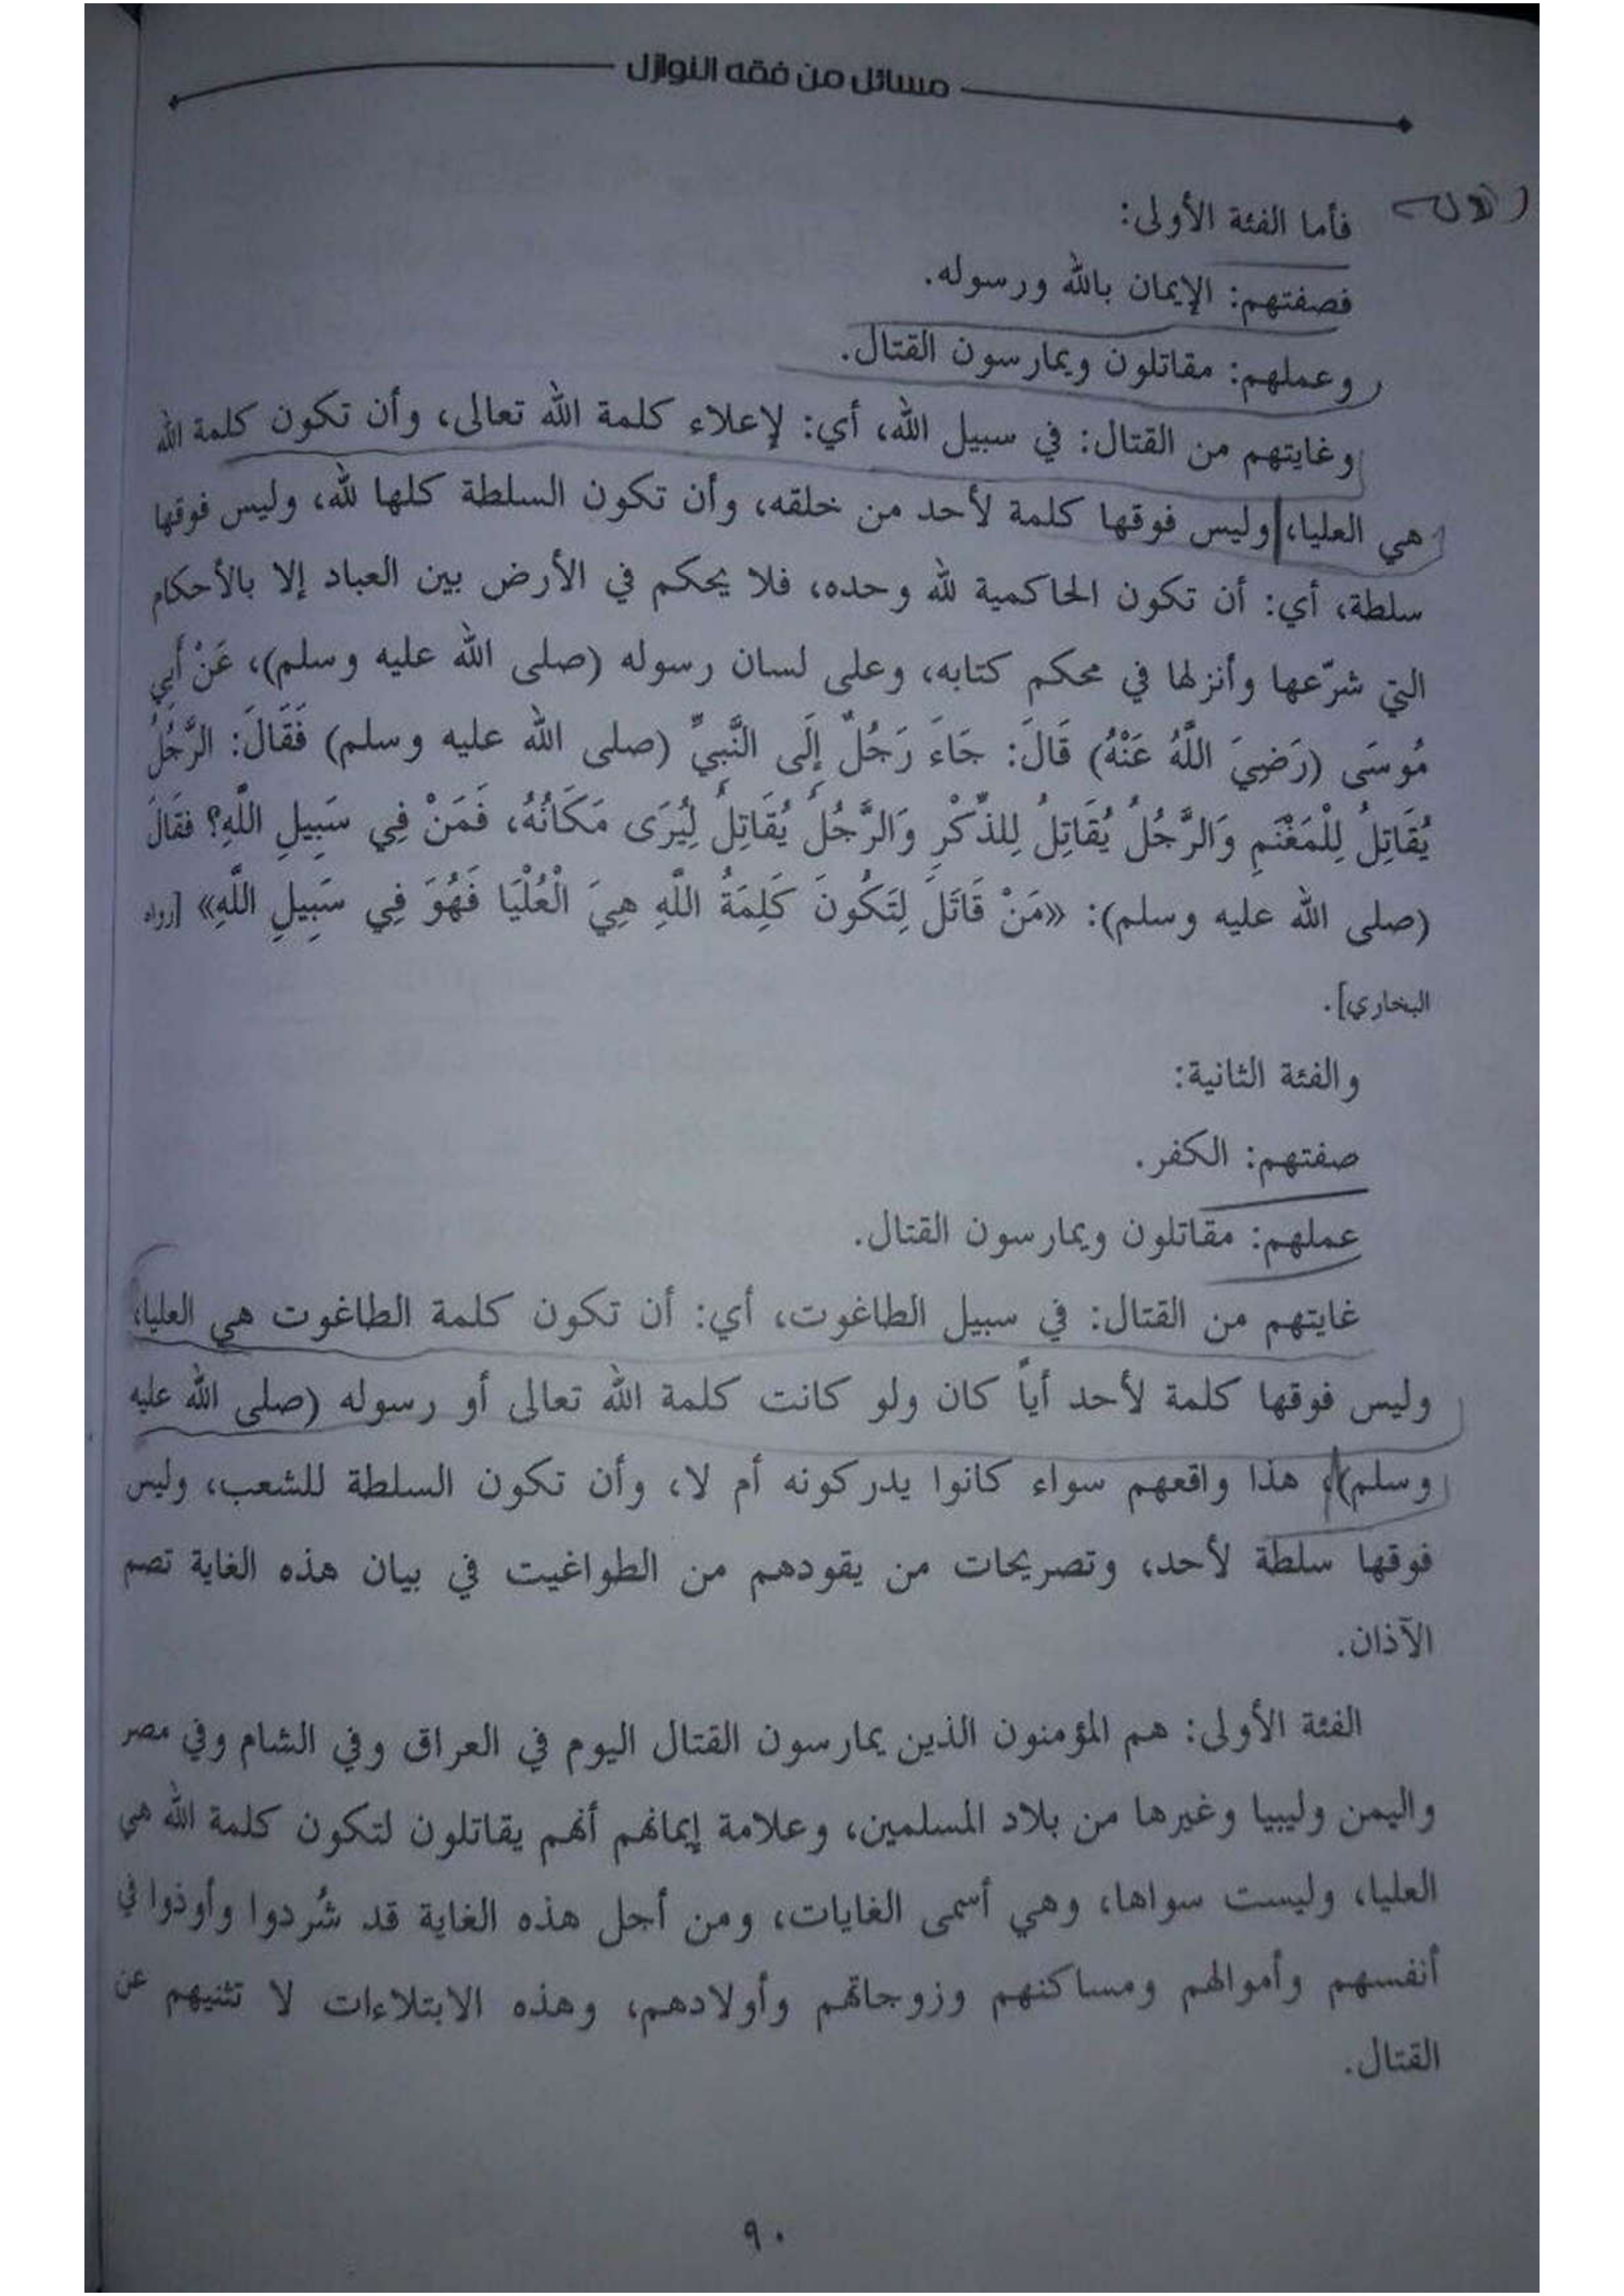 مسائل من فقه النوازل
فأما الفئة الأولى:
فصفتهم: الإيمان بالله ورسوله.
وعملهم: مقاتلون ويمارسون القتال.
وغايتهم من القتال: في سبيل الله، أي: لإعلاء كلمة الله تعالى، وأن تكون كلمة الله
هي العليا، وليس فوقها كلمة لأحد من خلقه، وأن تكون السلطة كلها لله، وليس فوقها
سلطة، أي: أن تكون الحاكمية لله وحده، فلا يحكم في الأرض بين العباد إلا بالأحكام
التي شرّعها وأنزلها في محكم كتابه، وعلى لسان رسوله (صلى الله عليه وسلم)، عَنْ أَبِي
مُوسَى (رَضِيَ اللَّهُ عَنْهُ) قَالَ: جَاءَ رَجُلٌ إِلَى النَّبِيِّ (صلى الله عليه وسلم) فَقَالَ: الرَّجُلُ
يُقَاتِلُ لِلْمَغْنَمِ وَالرَّجُلُ يُقَاتِلُ لِلذِّكْرِ وَالرَّجُلُ يُقَاتِلُ لِيُرَى مَكَانُهُ، فَمَنْ فِي سَبِيلِ اللَّهِ؟ فقَالَ
(صلى الله عليه وسلم): «مَنْ قَاتَلَ لِتَكُونَ كَلِمَةُ اللَّهِ هِيَ الْعُلْيَا فَهُوَ فِي سَبِيلِ اللَّهِ» [رواه
البخاري].
والفئة الثانية:
صفتهم: الكفر.
عملهم: مقاتلون ويمارسون القتال.
غايتهم من القتال: في سبيل الطاغوت، أي: أن تكون كلمة الطاغوت هي العليا،
وليس فوقها كلمة لأحد أياً كان ولو كانت كلمة الله تعالى أو رسوله (صلى الله عليه
وسلم)، هذا واقعهم سواء كانوا يدركونه أم لا، وأن تكون السلطة للشعب، وليس
فوقها سلطة لأحد، وتصريحات من يقودهم من الطواغيت في بيان هذه الغاية تصم
الآذان.
الفئة الأولى: هم المؤمنون الذين يمارسون القتال اليوم في العراق وفي الشام وفي مصر
واليمن وليبيا وغيرها من بلاد المسلمين، وعلامة إيمانهم أنهم يقاتلون لتكون كلمة الله هي
العليا، وليست سواها، وهي أسمى الغايات، ومن أجل هذه الغاية قد شُردوا وأوذوا في
أنفسهم وأموالهم ومساكنهم وزوجاتهم وأولادهم، وهذه الابتلاءات لا تثنيهم عن
القتال.
٩٠